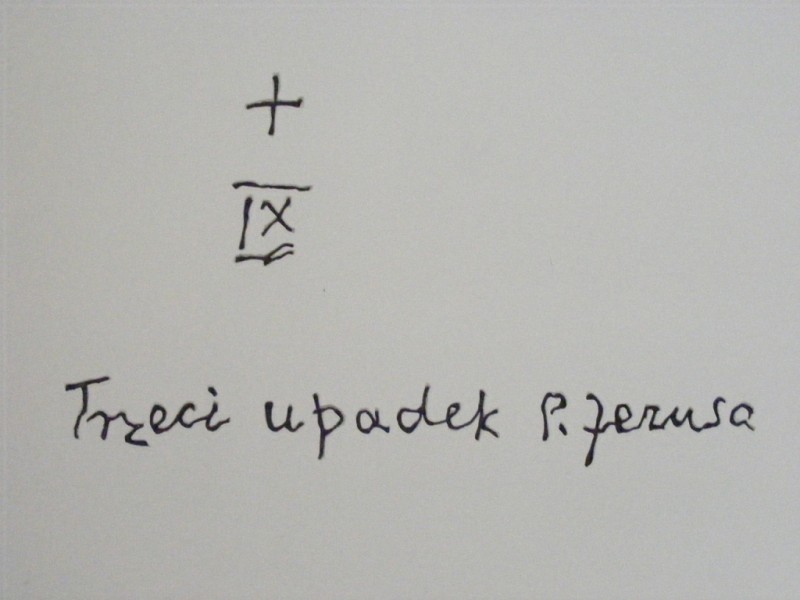 +
IX
Trzeci upadek P. Jezusa